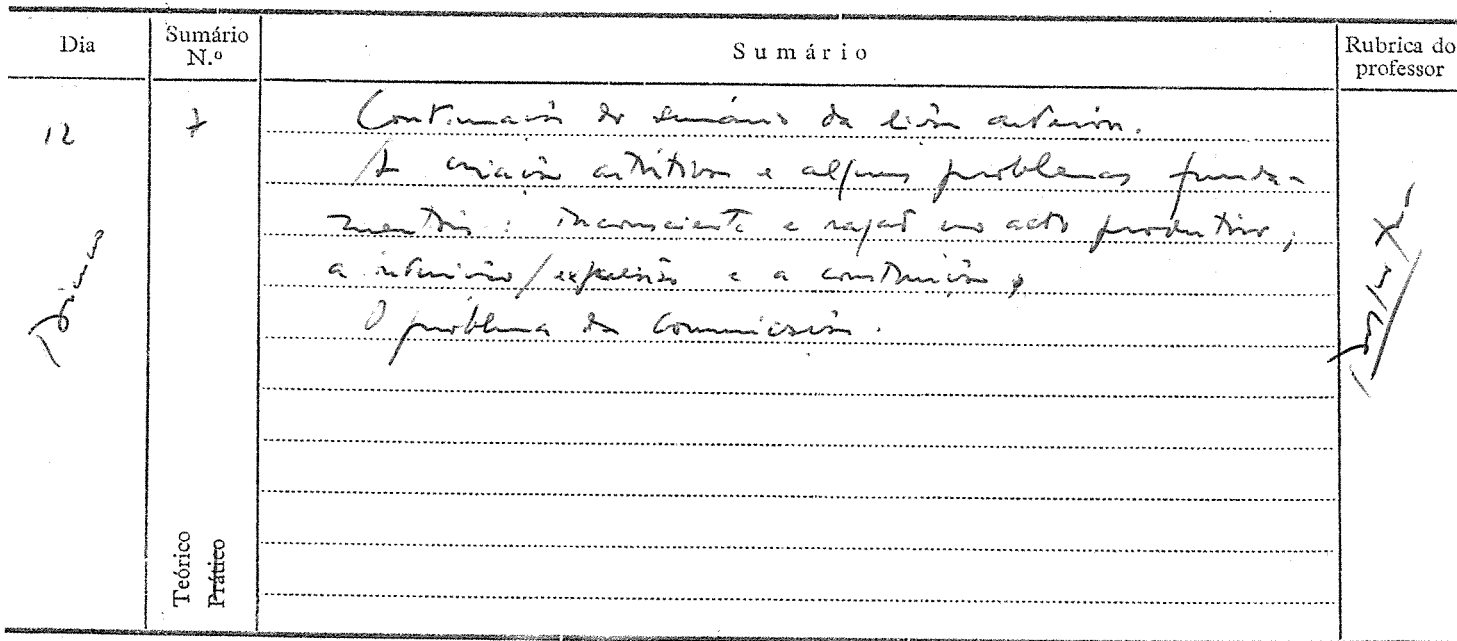 Dia
Sumário N.º
Sumário
Rubrica do professor
12
7
Continuação do sumário da lição anterior.
A criação artística e alguns problemas funda-
mentais: inconsciente e razão no acto produtivo;
a intuição/expressão e a construção.
O problema da comunicação.
Teórico
Prático